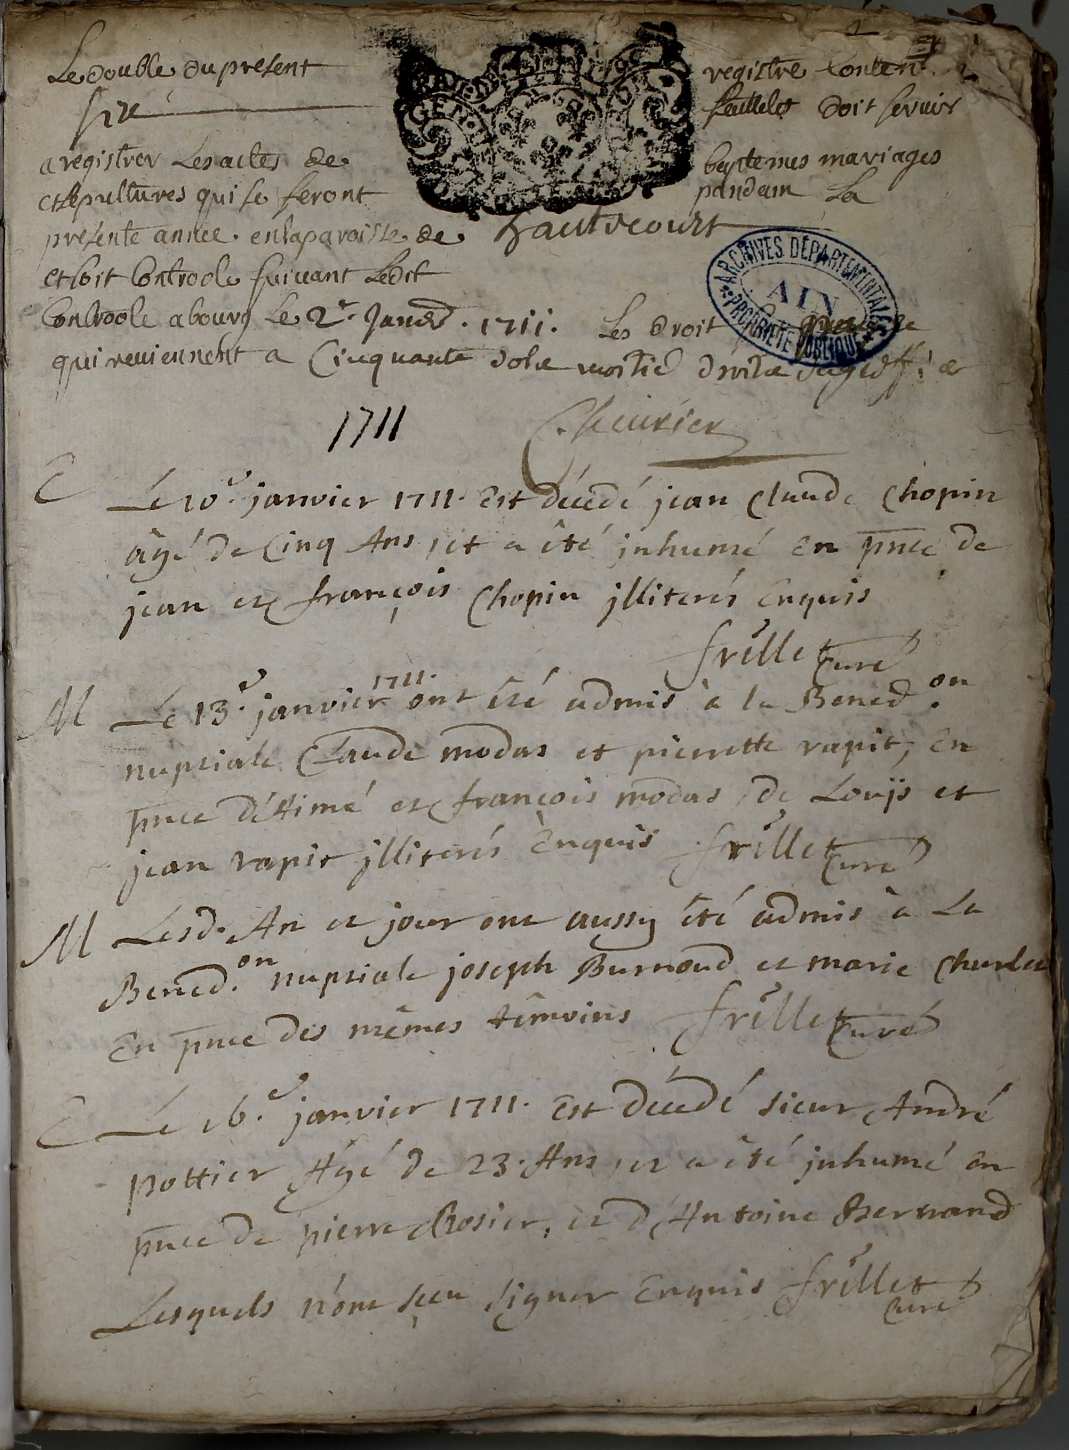 Le double du present registre Conten.
six feuillets doit servir
a registrer Les actes de baptemes mariages
et sepultures qui se feront pandam La
presente année en la parroisse de hautecourt
et soit Controole suivant Ledit
Controole a bourg Le 2.e Janer. 1711. Les droit
qui reviennent a Cinquante sols moitié droits
1711
Chevrier
GEN
ARCHIVES DÉPARTEMENTALES
AIN
PROPRIÉTÉ PUBLIQUE
Le 10.e janvier 1711. Est décedé jean Claude Chopin
âgé de Cinq Ans, et a été inhumé en pnce de
jean et françois Chopin jlliterés Enquis
frillet Curé
M Le 13.e janvier 1711. ont été admis à la Bened.on
nuptiale Claude modas et pierrette rapit, En
pnce d'Aimé et françois modas, de Louijs et
jean rapit jlliterés Enquis frillet Curé
M Lesd. An et jour ont aussy été admis à La
Bened.on nuptiale joseph Burnoud et marie Charlet
En pnce des mêmes témoins frillet Curé
Le 16.e janvier 1711. Est décedé sieur André
pottier Agé de 23. Ans, et a été jnhumé En
pnce de pierre Rosier, et d'Antoine Bernand
Lesquels n'ont sçeu signer Enquis frillet Curé